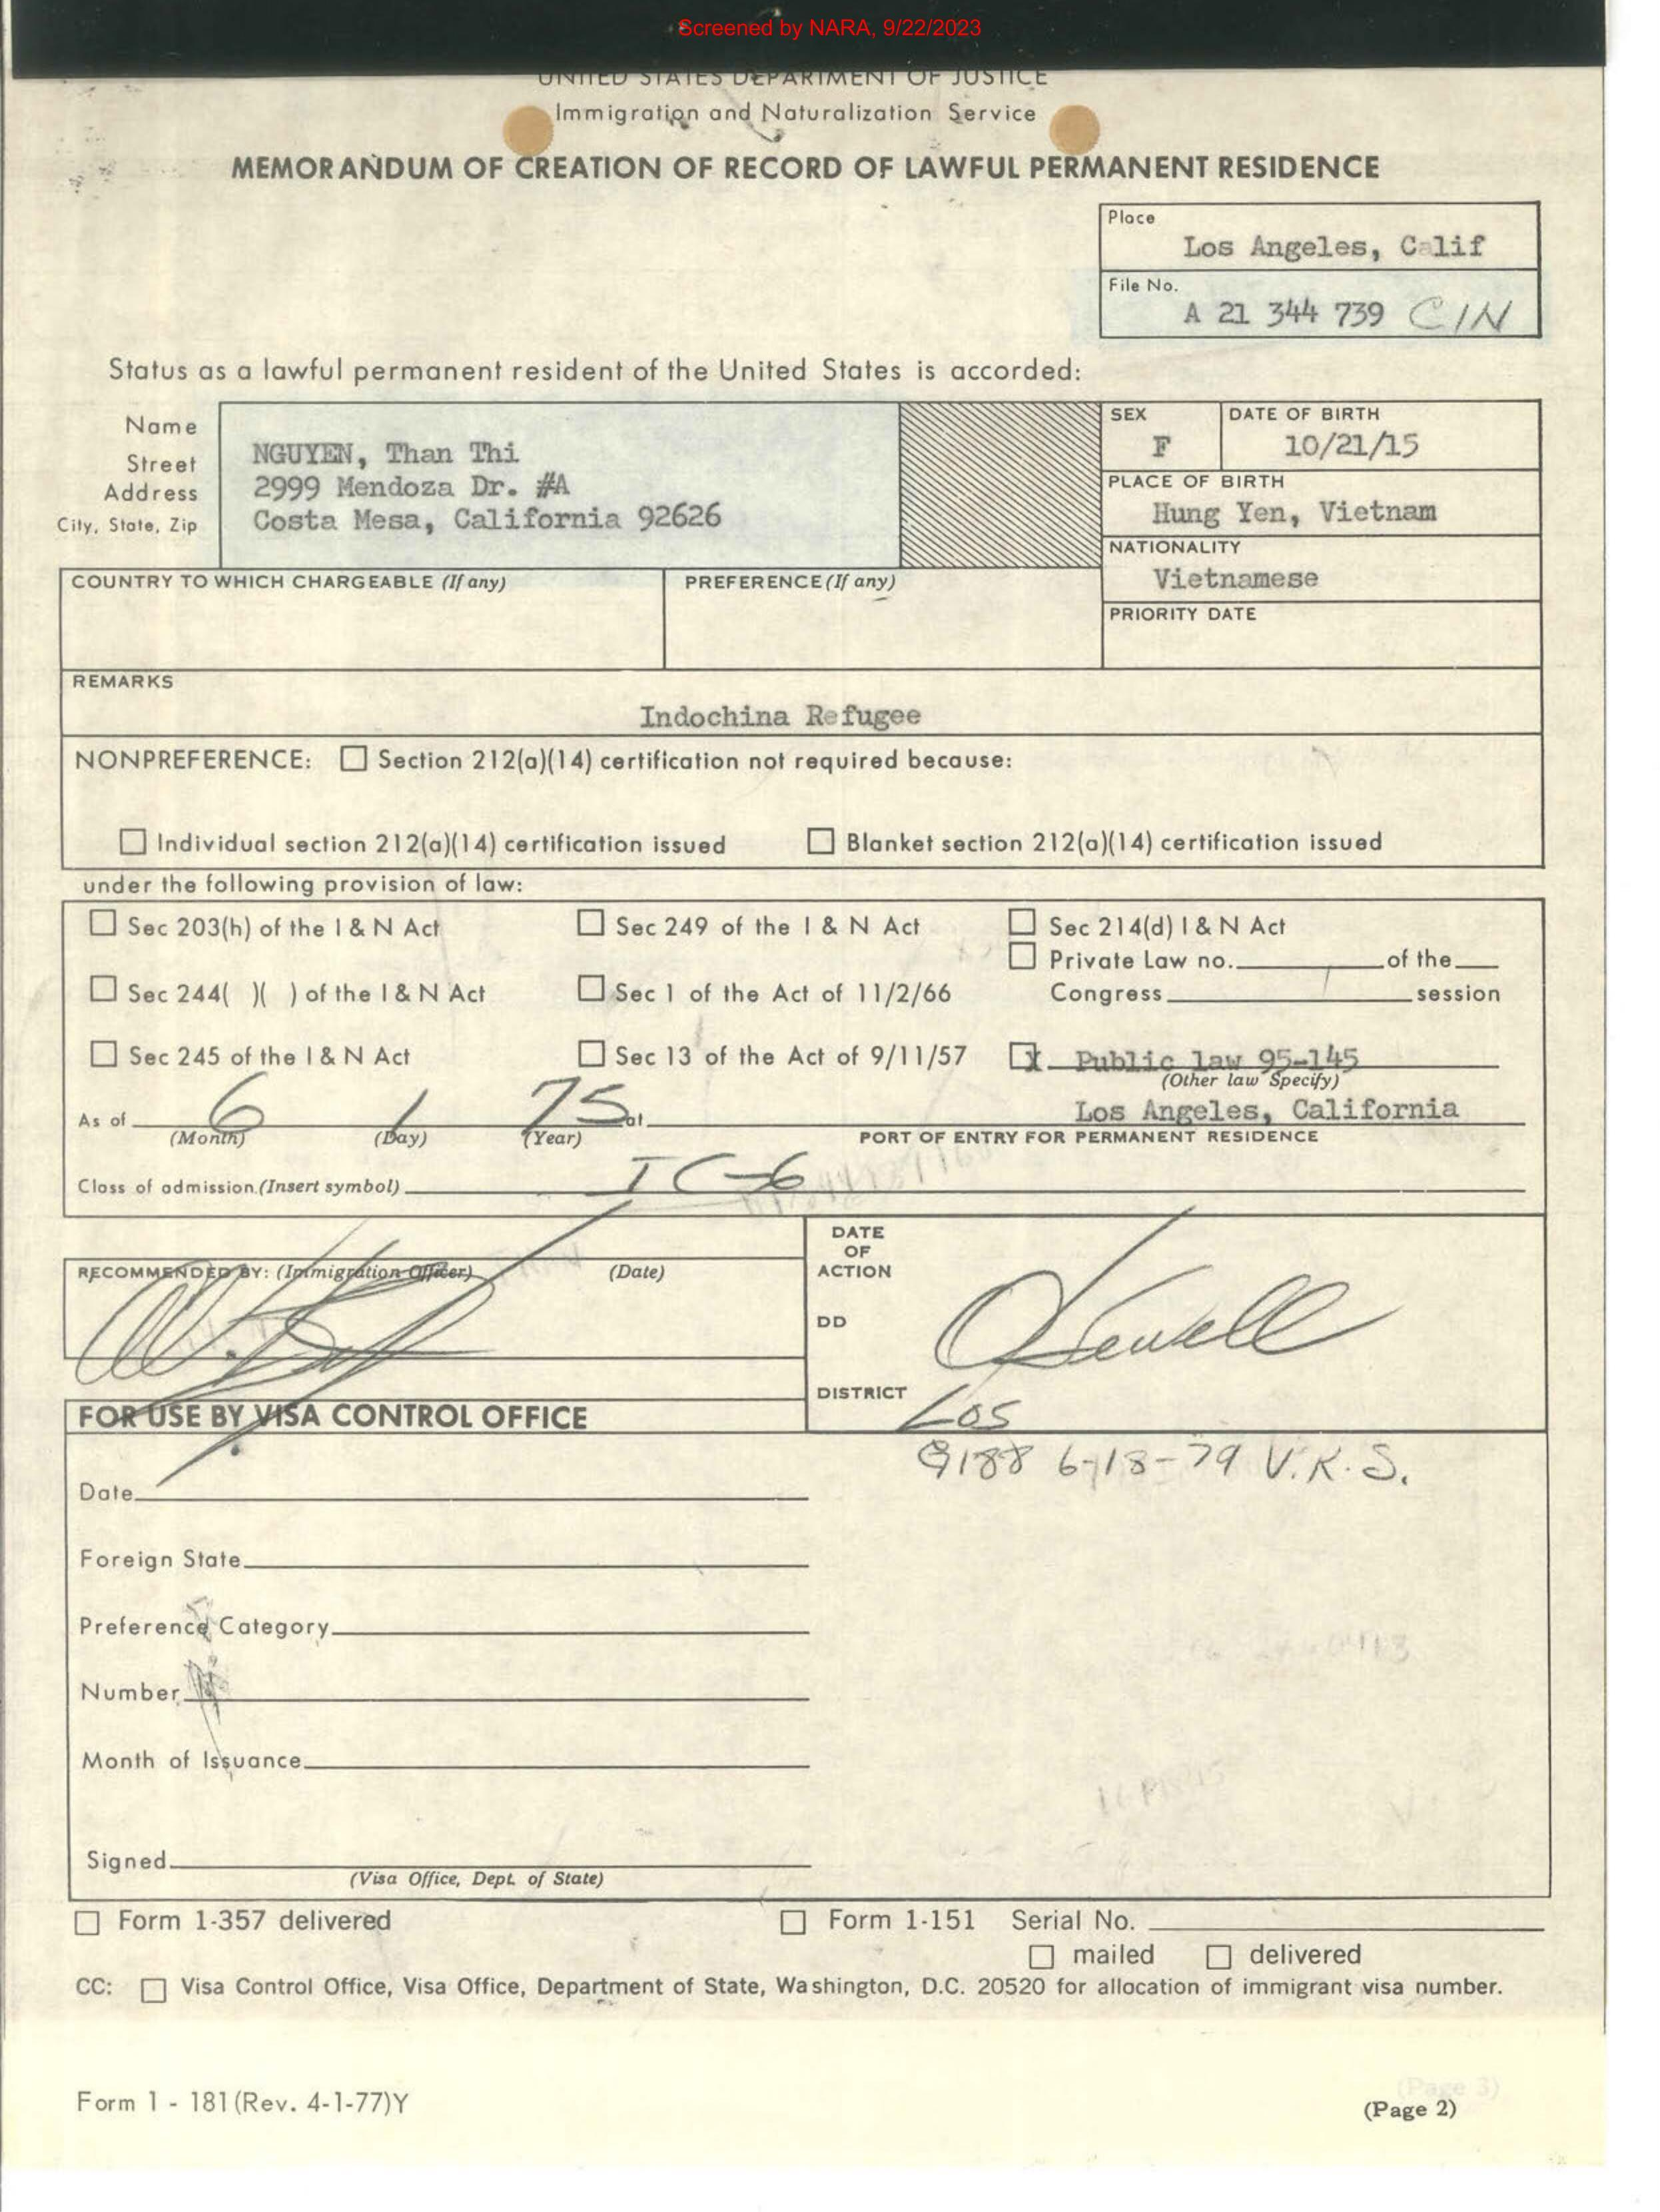 Screened by NARA, 9/22/2023
UNITED STATES DEPARTMENT OF JUSTICE
Immigration and Naturalization Service
MEMORANDUM OF CREATION OF RECORD OF LAWFUL PERMANENT RESIDENCE
Place
Los Angeles, Calif
File No.
A 21 344 739 CIN
Status as a lawful permanent resident of the United States is accorded:
Name
Street
Address
City, State, Zip
NGUYEN, Than Thi
2999 Mendoza Dr. #A
Costa Mesa, California 92626
SEX
F
DATE OF BIRTH
10/21/15
PLACE OF BIRTH
Hung Yen, Vietnam
NATIONALITY
Vietnamese
PRIORITY DATE
COUNTRY TO WHICH CHARGEABLE (If any)
PREFERENCE (If any)
REMARKS
Indochina Refugee
NONPREFERENCE: Section 212(a)(14) certification not required because:
Individual section 212(a)(14) certification issued Blanket section 212(a)(14) certification issued
under the following provision of law:
Sec 203(h) of the I & N Act Sec 249 of the I & N Act Sec 214(d) I & N Act
Private Law no. of the
Sec 244( )( ) of the I & N Act Sec 1 of the Act of 11/2/66 Congress session
Sec 245 of the I & N Act Sec 13 of the Act of 9/11/57 X Public law 95-145
(Other law Specify)
As of 6 1 75 at Los Angeles, California
(Month) (Day) (Year) PORT OF ENTRY FOR PERMANENT RESIDENCE
Class of admission (Insert symbol) IC-6
RECOMMENDED BY: (Immigration Officer) (Date)
DATE
OF
ACTION
DD
DISTRICT
Los
FOR USE BY VISA CONTROL OFFICE
G188 6-18-79 V.K.S.
Date
Foreign State
Preference Category
Number
Month of Issuance
Signed
(Visa Office, Dept. of State)
Form 1-357 delivered Form 1-151 Serial No.
mailed delivered
CC: Visa Control Office, Visa Office, Department of State, Washington, D.C. 20520 for allocation of immigrant visa number.
Form 1 - 181 (Rev. 4-1-77)Y
(Page 3)
(Page 2)